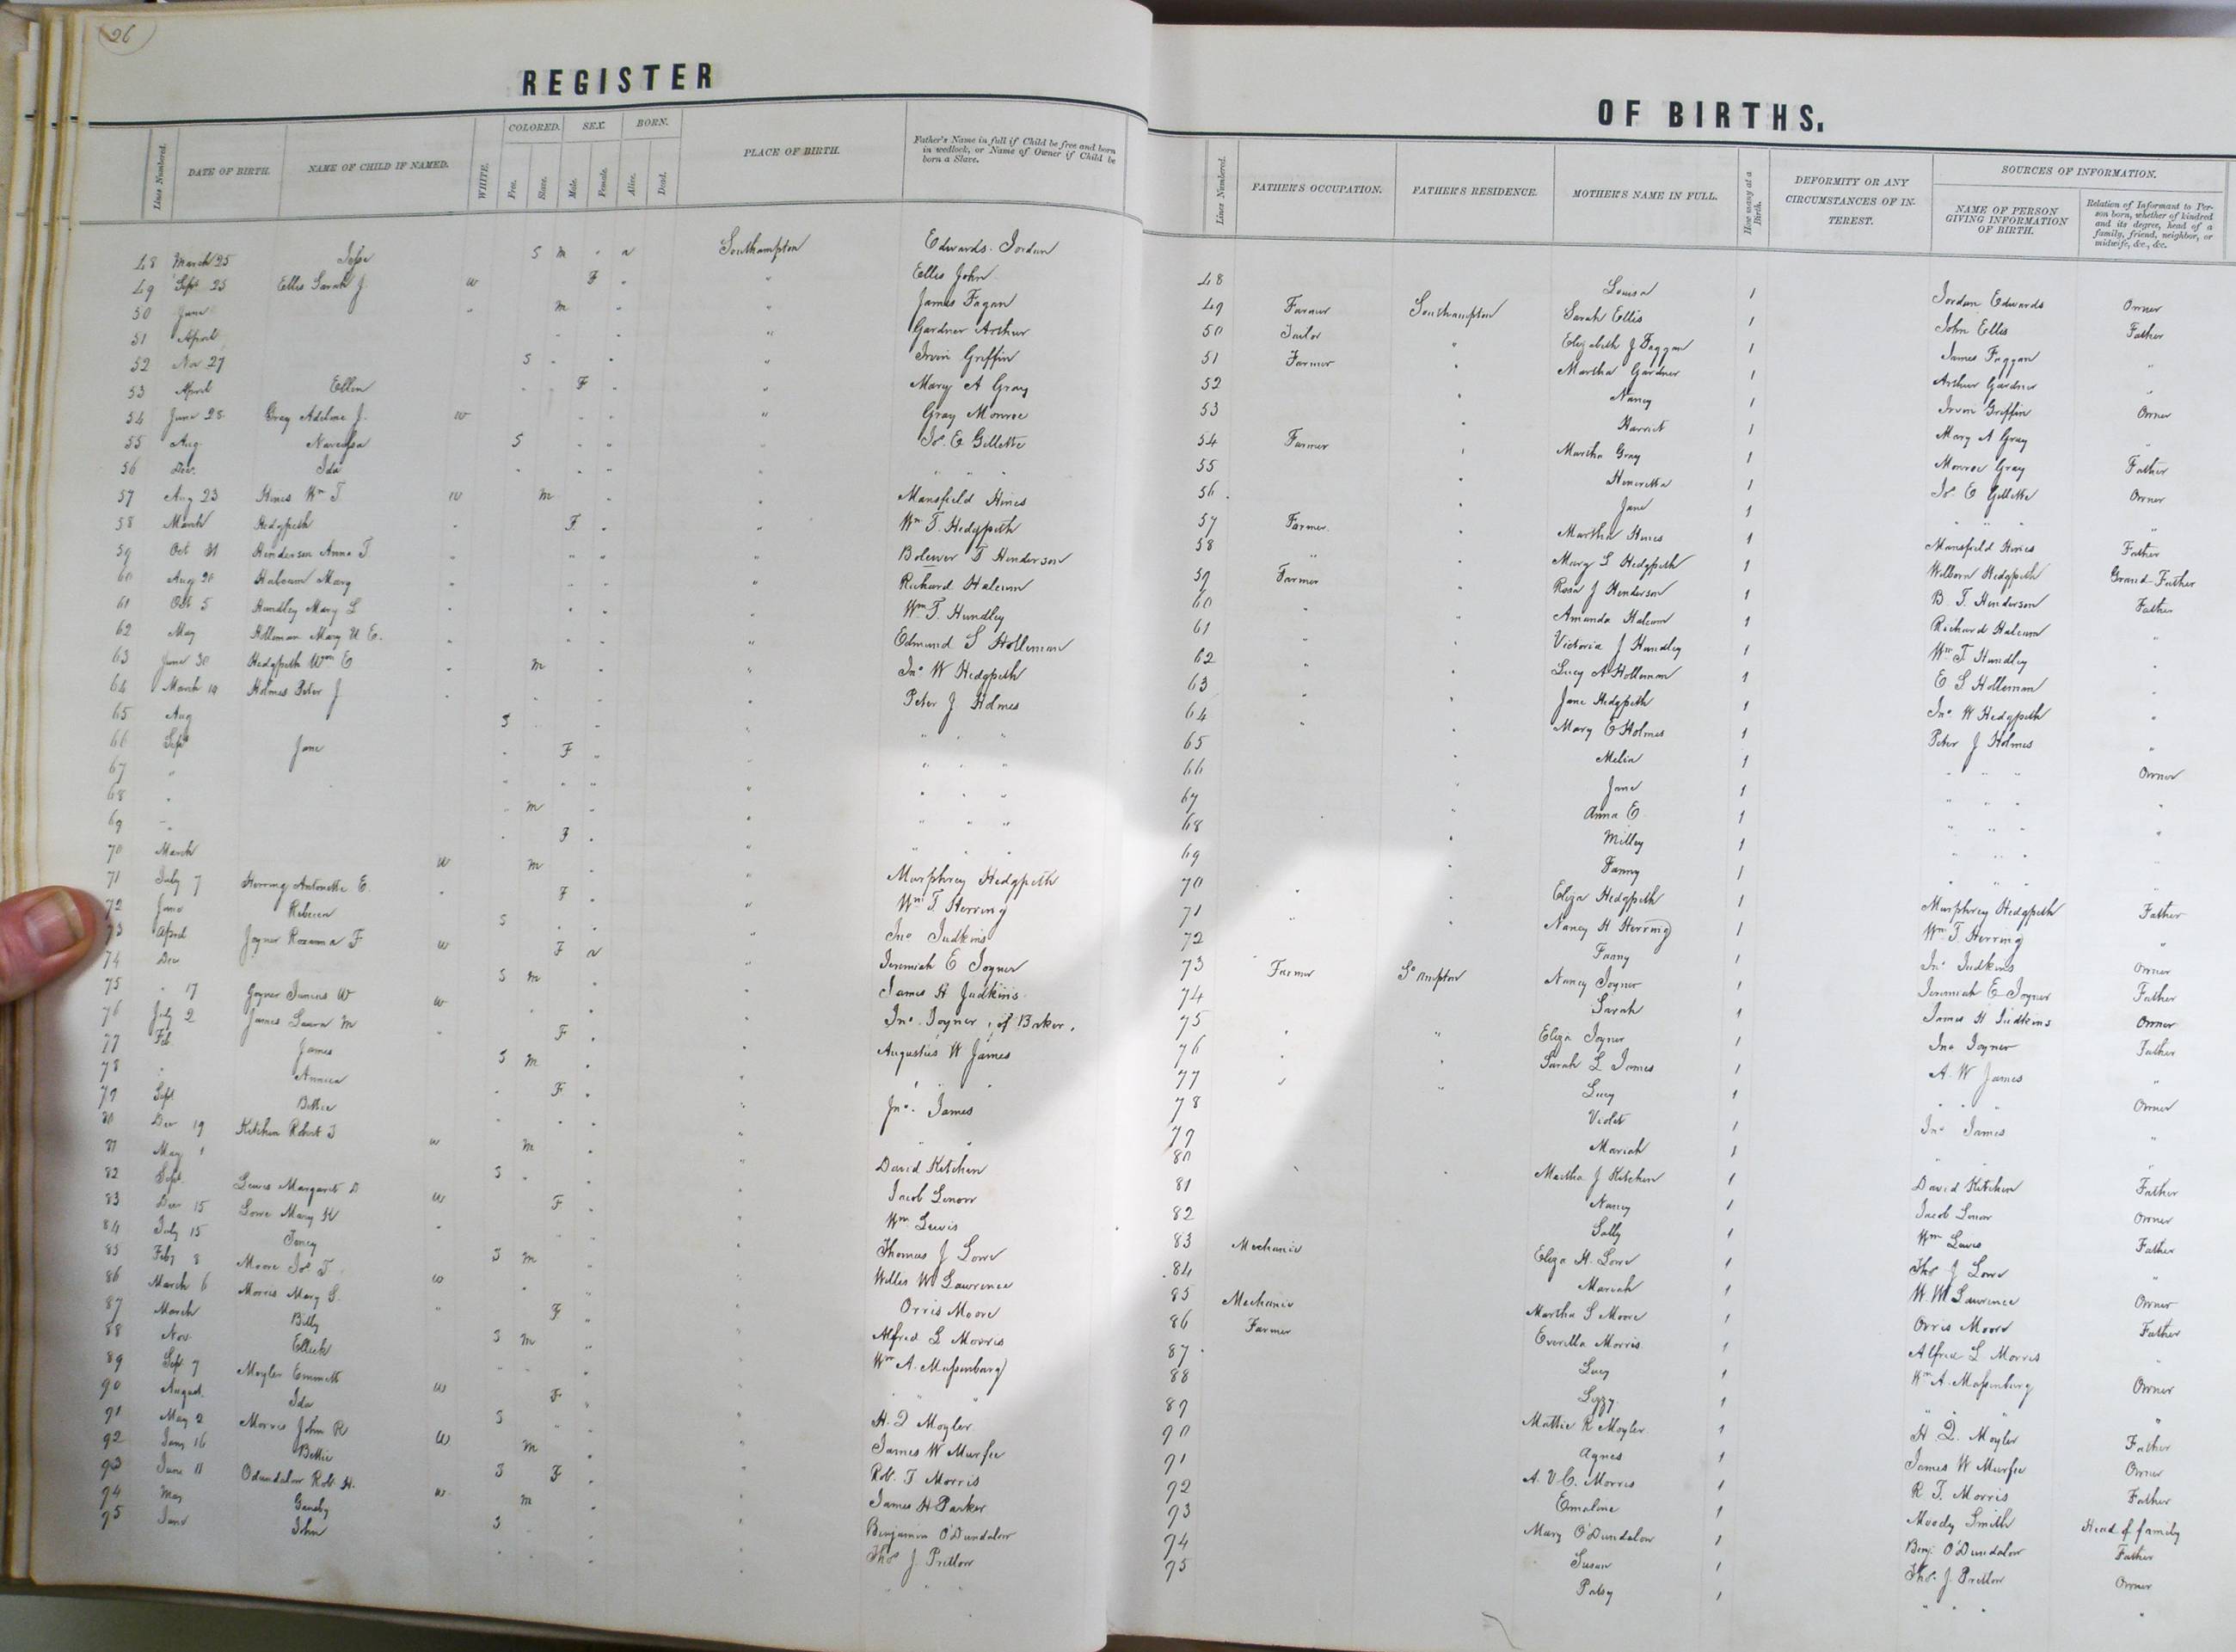 26
REGISTER OF BIRTHS.
Lines Numbered. DATE OF BIRTH. NAME OF CHILD IF NAMED. WHITE. COLORED. Free. Slave. SEX. Male. Female. BORN. Alive. Dead. PLACE OF BIRTH. Father's Name in full if Child be free and born in wedlock, or Name of Owner if Child be born a Slave.
Lines Numbered. FATHER'S OCCUPATION. FATHER'S RESIDENCE. MOTHER'S NAME IN FULL. How many at a Birth. DEFORMITY OR ANY CIRCUMSTANCES OF INTEREST. SOURCES OF INFORMATION. NAME OF PERSON GIVING INFORMATION OF BIRTH. Relation of Informant to Person born, whether of kindred and its degree, head of a family, friend, neighbor, or midwife, &c., &c.
48 March 25 S m " a Southampton Edwards Jordan 48 Louisa 1 Jordan Edwards Owner
49 Sept 25 Ellis Sarah J. w F " " Ellis John 49 Farmer Southampton Sarah Ellis 1 John Ellis Father
50 June " m " " James Fagan 50 Tailor " Elizabeth J Faggan 1 James Faggan "
51 April " " " Gardner Arthur 51 Farmer " Martha Gardner 1 Arthur Gardner
52 Nov 27 S " " " Irvin Griffin 52 " Nancy 1 Irvin Griffin Owner
53 April Ellen " F " " Mary A Gray 53 " Harriet 1 Mary A Gray "
54 June 28 Gray Adeline J. w " " " Gray Monroe 54 Farmer " Martha Gray 1 Monroe Gray Father
55 Aug S " " " Jos. E Gillette 55 " Henrietta 1 Jos. E Gillette Owner
56 Dec. Ida " " " " " " " 56 " Jane 1 " " " "
57 Aug 23 Hines Wm T w m " " Mansfield Hines 57 Farmer " Martha Hines 1 Mansfield Hines Father
58 March Hedgpeth " F " " Wm T. Hedgpeth 58 " " Mary S Hedgpeth 1 Wilborn Hedgpeth Grand-Father
59 Oct 31 Henderson Anna T " " " " T Henderson 59 Farmer " Rosa J Henderson 1 B. T. Henderson Father
60 Aug 20 Halcum Mary " " " " Richard Halcum 60 " " Amanda Halcum 1 Richard Halcum "
61 Oct 5 Hundley Mary L " " " " Wm T. Hundley 61 " " Victoria J Hundley 1 Wm T Hundley "
62 May Holleman Mary U E. " " " " Edmund S Holleman 62 " " Lucy A Holleman 1 E S Holleman "
63 June 30 Hedgpeth Wm E " m " " Jno. W Hedgpeth 63 " " Jane Hedgpeth 1 Jno. W Hedgpeth "
64 March 10 Holmes Peter J " " " " Peter J Holmes 64 " " Mary E Holmes 1 Peter J Holmes "
65 Aug S " " " " " " 65 " Melia 1 " " " Owner
66 Sept Jane " F " " " " " 66 " Jane 1 " " " "
67 " " " " " " " " 67 " Anna E 1 " " " "
68 " " m " " " " " 68 " Milley 1 " " " "
69 " " F " " " " " 69 " Fanny 1 " " " "
70 March w m " " Murphrey Hedgpeth 70 " " Eliza Hedgpeth 1 Murphrey Hedgpeth Father
71 July 7 Herring Antonette E. " F " " Wm T. Herring 71 " " Nancy H Herring 1 Wm T. Herring "
72 June Rebecca S " " " Jno Judkins 72 Fanny 1 Jno. Judkins Owner
73 April Joyner Roxanna F w F a " Jeremiah E Joyner 73 Farmer So ampton Nancy Joyner 1 Jeremiah E Joyner Father
74 Dec S m " " James H Judkins 74 Sarah 1 James H Judkins Owner
75 " 17 Joyner Junius W w " " " Jno. Joyner, of Baker. 75 " " Eliza Joyner 1 Jno Joyner Father
76 July 2 James Laura M " F " " Augustus W James 76 " " Sarah L James 1 A. W James "
77 Feb James S m " " " " " 77 " " Lucy 1 " " " Owner
78 " Annica " F " " Jno. James 78 Violet 1 Jno James "
79 Sept Bettie " " " " " " 79 Mariah 1 " " "
80 Dec 19 Kitchen Robert T w m " " David Kitchen 80 " " Martha J Kitchen 1 David Kitchen Father
81 May 1 S " " " Jacob Lenow 81 Nancy 1 Jacob Lenow Owner
82 Sept. Lewis Margaret D w F " " Wm Lewis 82 Sally 1 Wm Lewis Father
83 Dec 15 Lowe Mary K " " " " Thomas J Lowe 83 Mechanic Eliza H. Lowe 1 Thos J Lowe "
84 July 15 S m " " Willis W Lawrence 84 Mariah 1 W. W Lawrence Owner
85 Feby 8 Moore Jos T. w " " " Orris Moore 85 Mechanic Martha S Moore 1 Orris Moore Father
86 March 6 Morris Mary S. " F " " Alfred L Morris 86 Farmer Everilla Morris 1 Alfred L Morris "
87 March Billy S m " " Wm A. Massenburg 87 Lucy 1 Wm A. Massenburg Owner
88 Nov. Elleck " " " " " " " 88 Lizzy 1 " " " "
89 Sept 7 Moyler Emmett w F " " H. Q Moyler 89 Mattie R Moyler 1 H. Q. Moyler Father
90 August Ida S " " " James W Murfee 90 Agnes 1 James W Murfee Owner
91 May 2 Morris John R w m " " Rob. T Morris 91 A. V. C. Morris 1 R T. Morris Father
92 Jany 16 Bettie S F " " James H Parker 92 Emaline 1 Moody Smith Head of family
93 June 11 Odundalow Rob. H. w m " " Benjamin O'Dundalow 93 Mary O'Dundalow 1 Benj. O'Dundalow Father
94 May S " " " Thos J Pretlow 94 Susan 1 Thos. J Pretlow Owner
95 June John " " " " " " 95 Patsy 1 " " " "